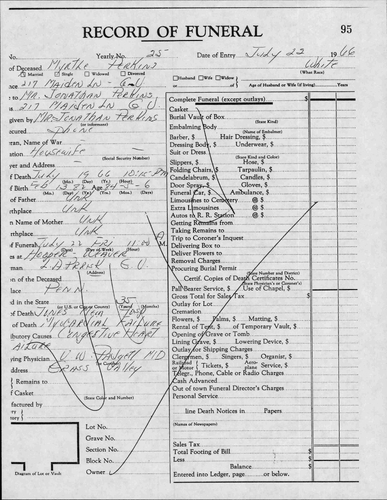 RECORD OF FUNERAL 95
No. Yearly No. 25 Date of Entry July 22 1966
of Deceased Myrtle Perkins White
Married Single Widowed Divorced (What Race)
217 Maiden Ln - G.V. Husband Wife Widow
Age of Husband or Wife (if living) Years
to Mr. Jonathan Perkins
217 Maiden Ln G.V.
given by Mr. Jonathan Perkins
(or informant)
Phone
ran, Name of War
ation Housewife
(Social Security Number)
yer and Address
f Death July 19 66 10:15 PM
(Mo.) (Day) (Yr.) (Hour)
f Birth Feb 13 82 Age 84-5-6
(Mo.) (Day) (Yr.) (Yrs.) (Mos.) (Days)
of Father Unk
rthplace Unk
n Name of Mother Unk
rthplace Unk
of Funeral July 22 Fri 11:00 A M.
(Date) (Day of Week) (Hour)
es at Hooper Weaver
man
(Address)
n of the Deceased
lace Penn.
d in the State 35
(or U.S. or City or County) (Years) (Months)
of Death Jones Mem Hosp
of Death Myocardial Failure
ibutory Causes Congestive Heart
ailure
ying Physician W. W. Padgett MD
ddress Grass Valley
Remains to
f Casket
(State Color and Number)
factured by
Lot No.
Grave No.
Section No.
Block No.
Owner
Diagram of Lot or Vault
Complete Funeral (except outlays) $
Casket
Burial Vault of Box
(State Kind)
Embalming Body
(Name of Embalmer)
Barber, $ Hair Dressing, $
Dressing Body, $ Underwear, $
Suit or Dress
(State Kind and Color)
Slippers, $ Hose, $
Folding Chairs, $ Tarpaulin, $
Candelabrum, $ Candles, $
Door Spray, $ Gloves, $
Funeral Car, $ Ambulance, $
Limousines to Cemetery @ $
Extra Limousines @ $
Autos to R. R. Station @ $
Getting Remains from
Taking Remains to
Trip to Coroner's Inquest
Delivering Box to
Deliver Flowers to
Removal Charges
Procuring Burial Permit
(State Number and District)
Certif. Copies of Death Certificates No.
(State Physician's or Coroner's)
Pall-Bearer Service, $ Use of Chapel, $
Gross Total for Sales Tax $
Outlay for Lot
Cremation
Flowers, $ Palms, $ Matting, $
Rental of Tent, $ of Temporary Vault, $
Opening of Grave or Tomb
Lining Grave, $ Lowering Device, $
Outlay for Shipping Charges
Clergymen, $ Singers, $ Organist, $
Railroad or Motor Tickets, $ Aeroplane Service, $
Telegr., Phone, Cable or Radio Charges
Cash Advanced
Out of town Funeral Director's Charges
Personal Service
line Death Notices in Papers
(Names of Newspapers)
Sales Tax
Total Footing of Bill $
Less $
Balance $
Entered into Ledger, page or below.